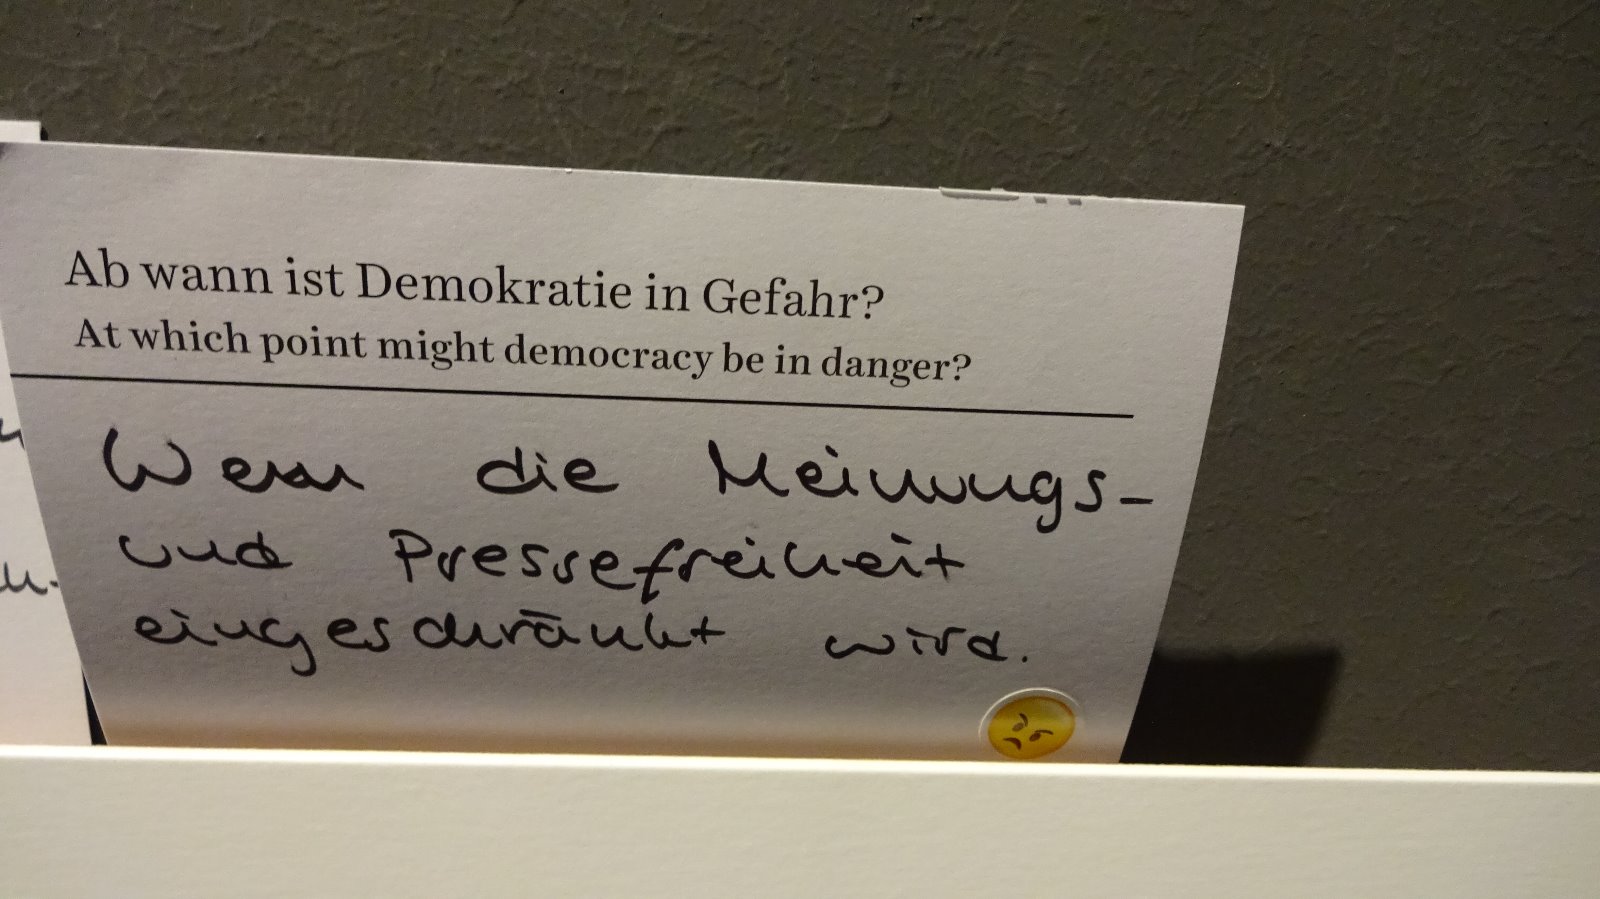 Ab wann ist Demokratie in Gefahr?
At which point might democracy be in danger?
Wenn die Meinungs-
und Pressefreiheit
eingeschränkt wird.